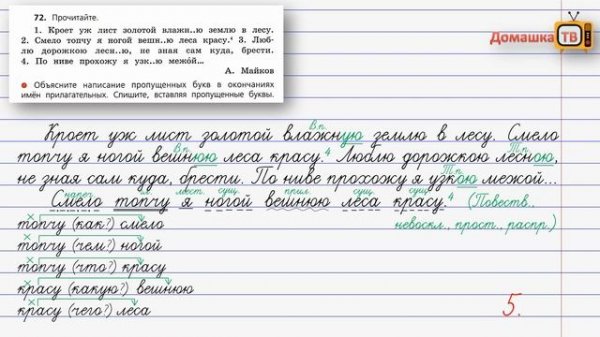 72. Прочитайте.
1. Кроет уж лист золотой влажн..ю землю в лесу.
2. Смело топчу я ногой вешн..ю леса красу.⁴ 3. Люб-
лю дорожкою лесн..ю, не зная сам куда, брести.
4. По ниве прохожу я узк..ю межой...
А. Майков
● Объясните написание пропущенных букв в окончаниях
имён прилагательных. Спишите, вставляя пропущенные буквы.
Домашка ТВ
В.п.
Кроет уж лист золотой влажную землю в лесу. Смело
В.п. Т.п.
топчу я ногой вешнюю леса красу.⁴ Люблю дорожкою лесною,
Т.п.
не зная сам куда, брести. По ниве прохожу я узкою межой...
нареч. мест. сущ. прил. сущ. сущ.
Смело топчу я ногой вешнюю леса красу.⁴ (Повеств.,
топчу (как?) смело невоскл., прост., распр.)
топчу (чем?) ногой
топчу (что?) красу
красу (какую?) вешнюю
красу (чего?) леса
5.